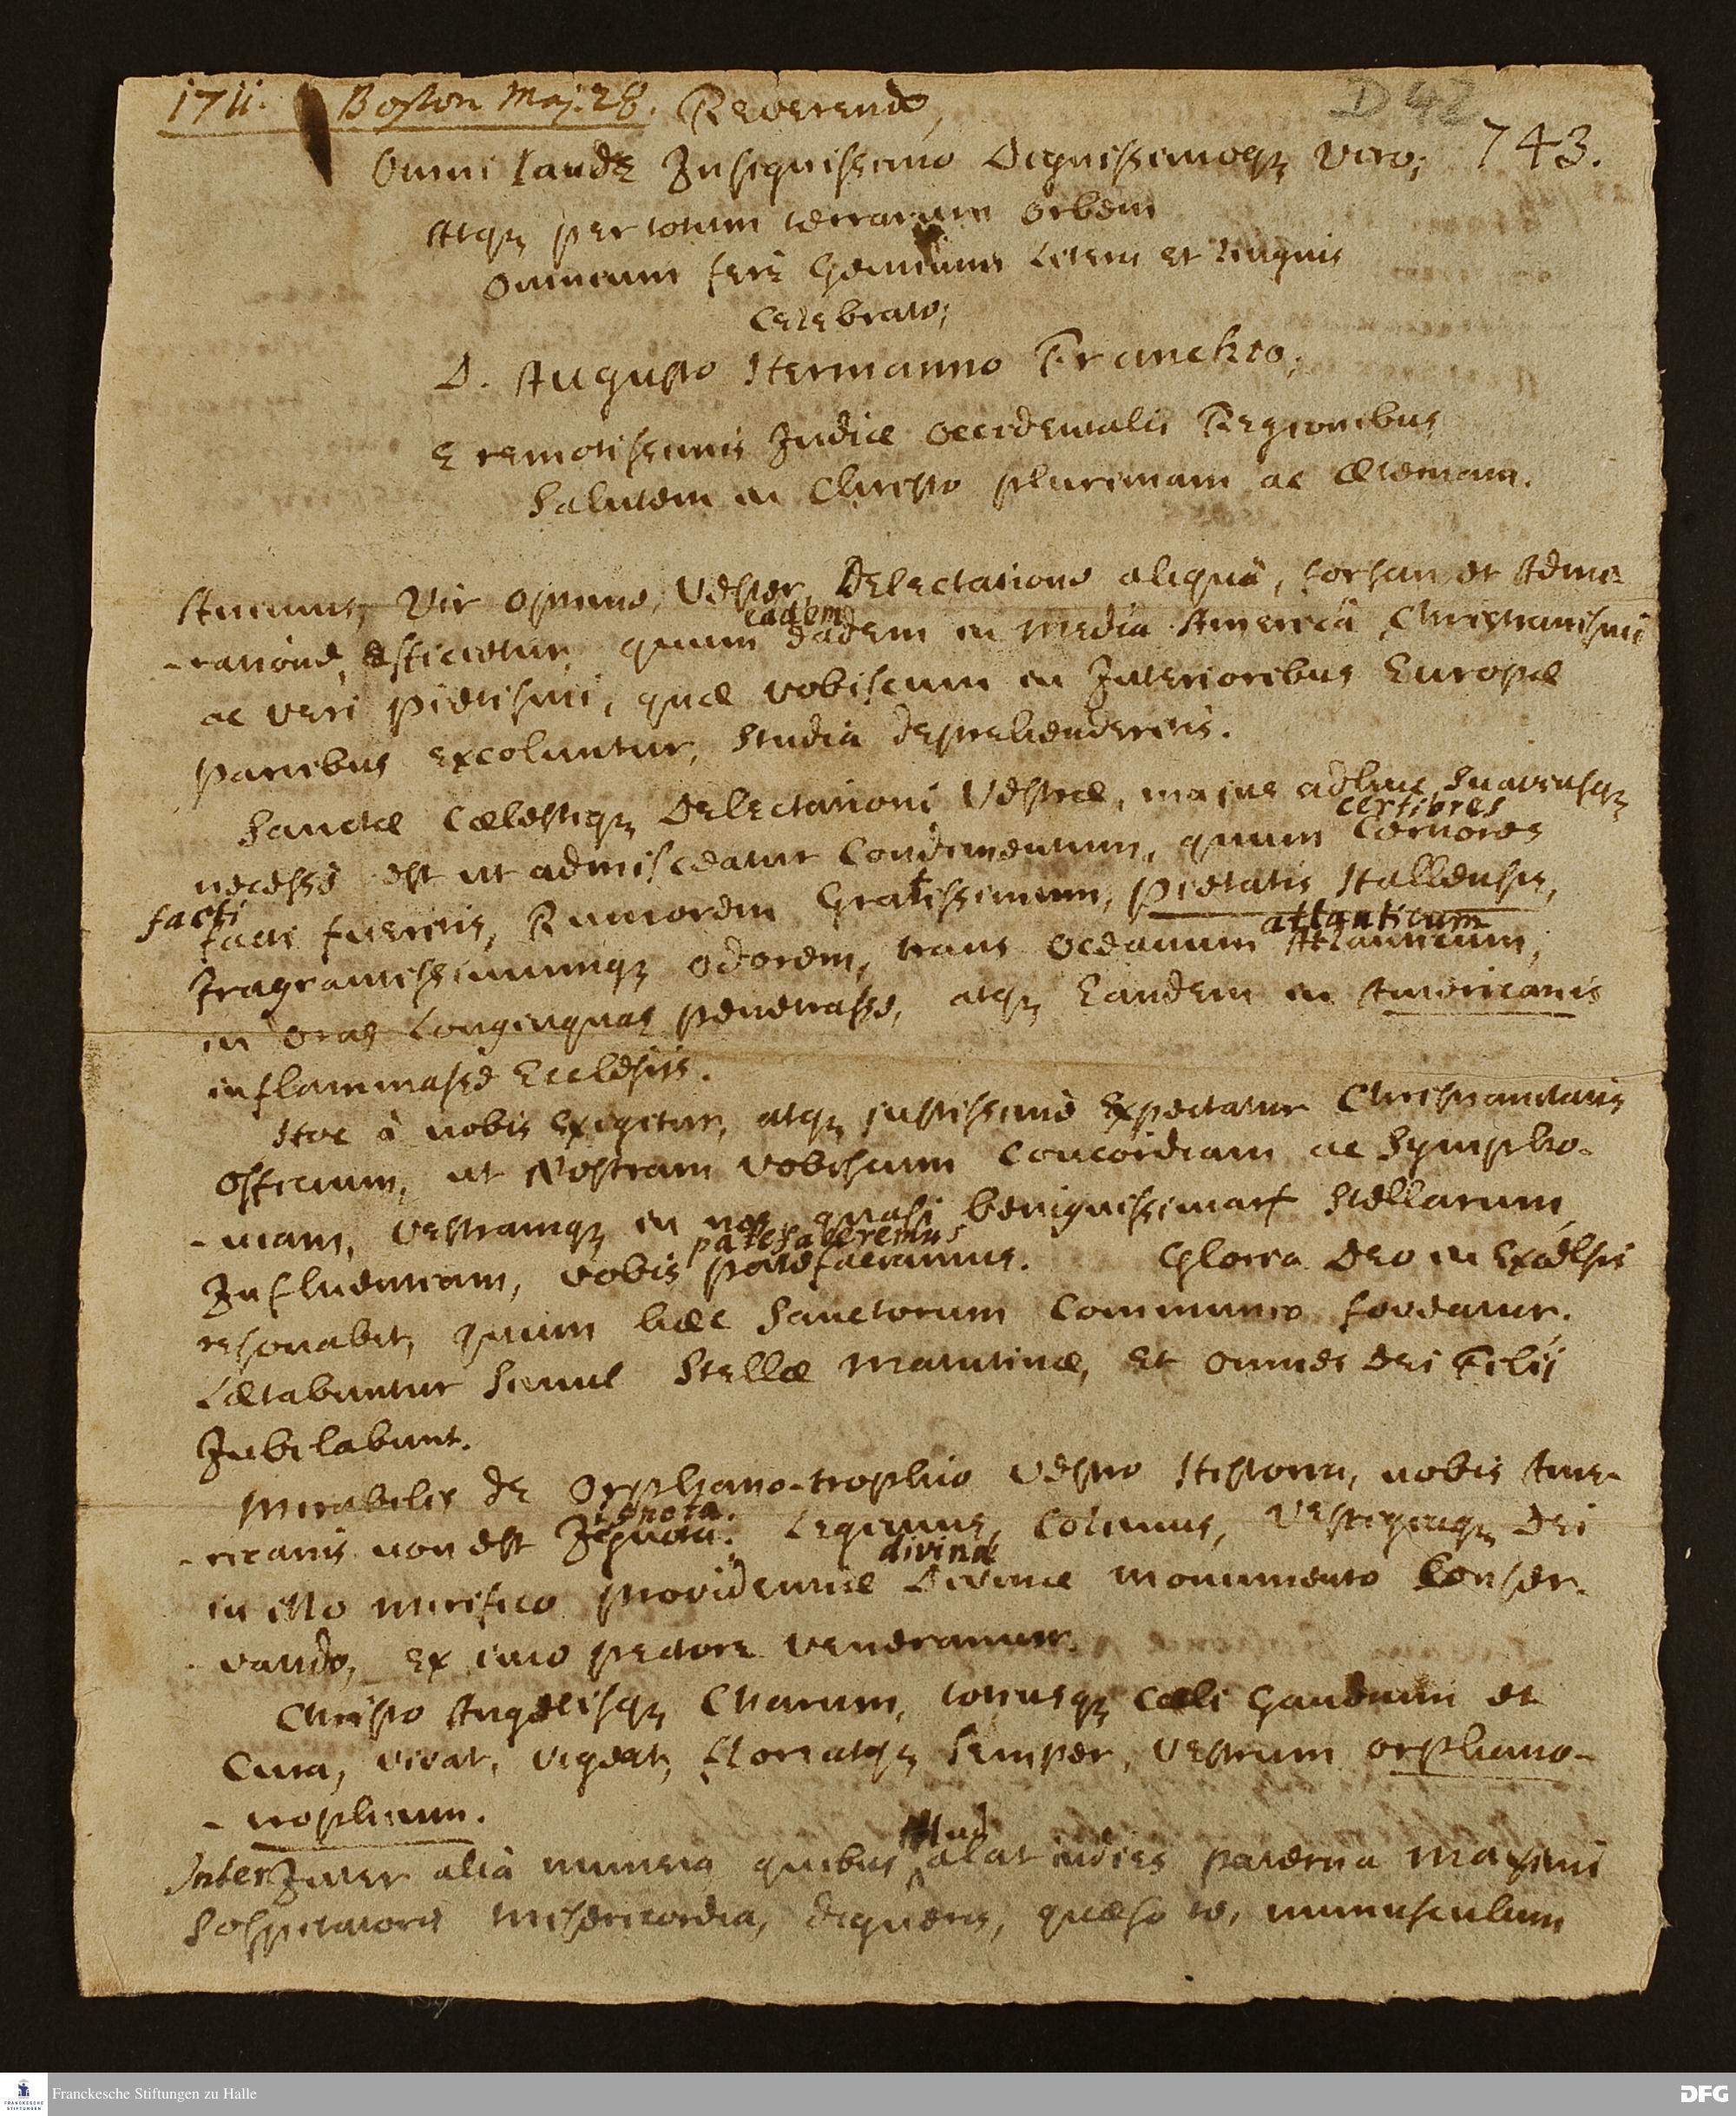 1711. Boston Maj. 28. Reverendo,
D 42
743.
Omni laude Insignissimo Dignissimoq; Viro;
Atq; per totum terrarum orbem
Omnium fere Gentium Literis et linguis
Celebrato;
D. Augusto Hermanno Franckio;
E remotissimis Indiæ occidentalis Regionibus
Salutem in Christo plurimam ac æternam.
Animus, Vir optime, Vester, Delectatione aliquâ, forsan et Admi-
eadem
-ratione afficietur, quum eadem in mediâ Americâ, Christianismi
ac veri pietismi, quæ vobiscum in Interioribus Europæ
partibus excoluntur, studia deprehenderetis.
Sanctæ Cælestiq; Delectationi Vestræ, majus adhuc suaviusq;
certiores
necesse est ut admisceatur Condimentum, quum Certiores
facti
facti fueritis, Rumorem Gratissimum, pietatis Hallensis,
atlanticum
fragrantissimumq; odorem, trans oceanum Atlanticum,
in oras longinquas penetrasse, atq; Eandem in Americanis
inflammasse Ecclesiis.
Hoc à nobis exigitur, atq; justissimè Expectatur Christianitatis
officium, ut Nostram vobiscum Concordiam ac Sympho-
-niam, vestramq; in nos quasi benignissimarũ stellarum
patefaceremus
Influentiam, vobis patefaciamus. Gloria Deo in Excelsis
resonabit, quum hæc Sanctorum Communio foveatur.
Lætabuntur simul Stellæ matutinæ, et omnes Dei Filii
Jubilabunt.
Mirabilis de Orphano-trophio vestro Historia, nobis Ame-
ignota.
-ricanis non est Ignota. Legimus, Colimus, Vestigiaq; Dei
divinæ
in isto mirifico providentiæ Divinæ monumento Conser-
vando, ex imo pectore veneramur.
Christo Angelisq; Charum, totiusq; Cæli Gaudium et
Cura, vivat, vigeat, floreatq; semper, vestrum orphano-
-trophium.
illud
Inter Inter alia munera quibus alat indies paterna maximi
Sospitatoris misericordia, digneris, quæso te, munusculum
Franckesche Stiftungen zu Halle
FRANCKESCHE STIFTUNGEN
DFG